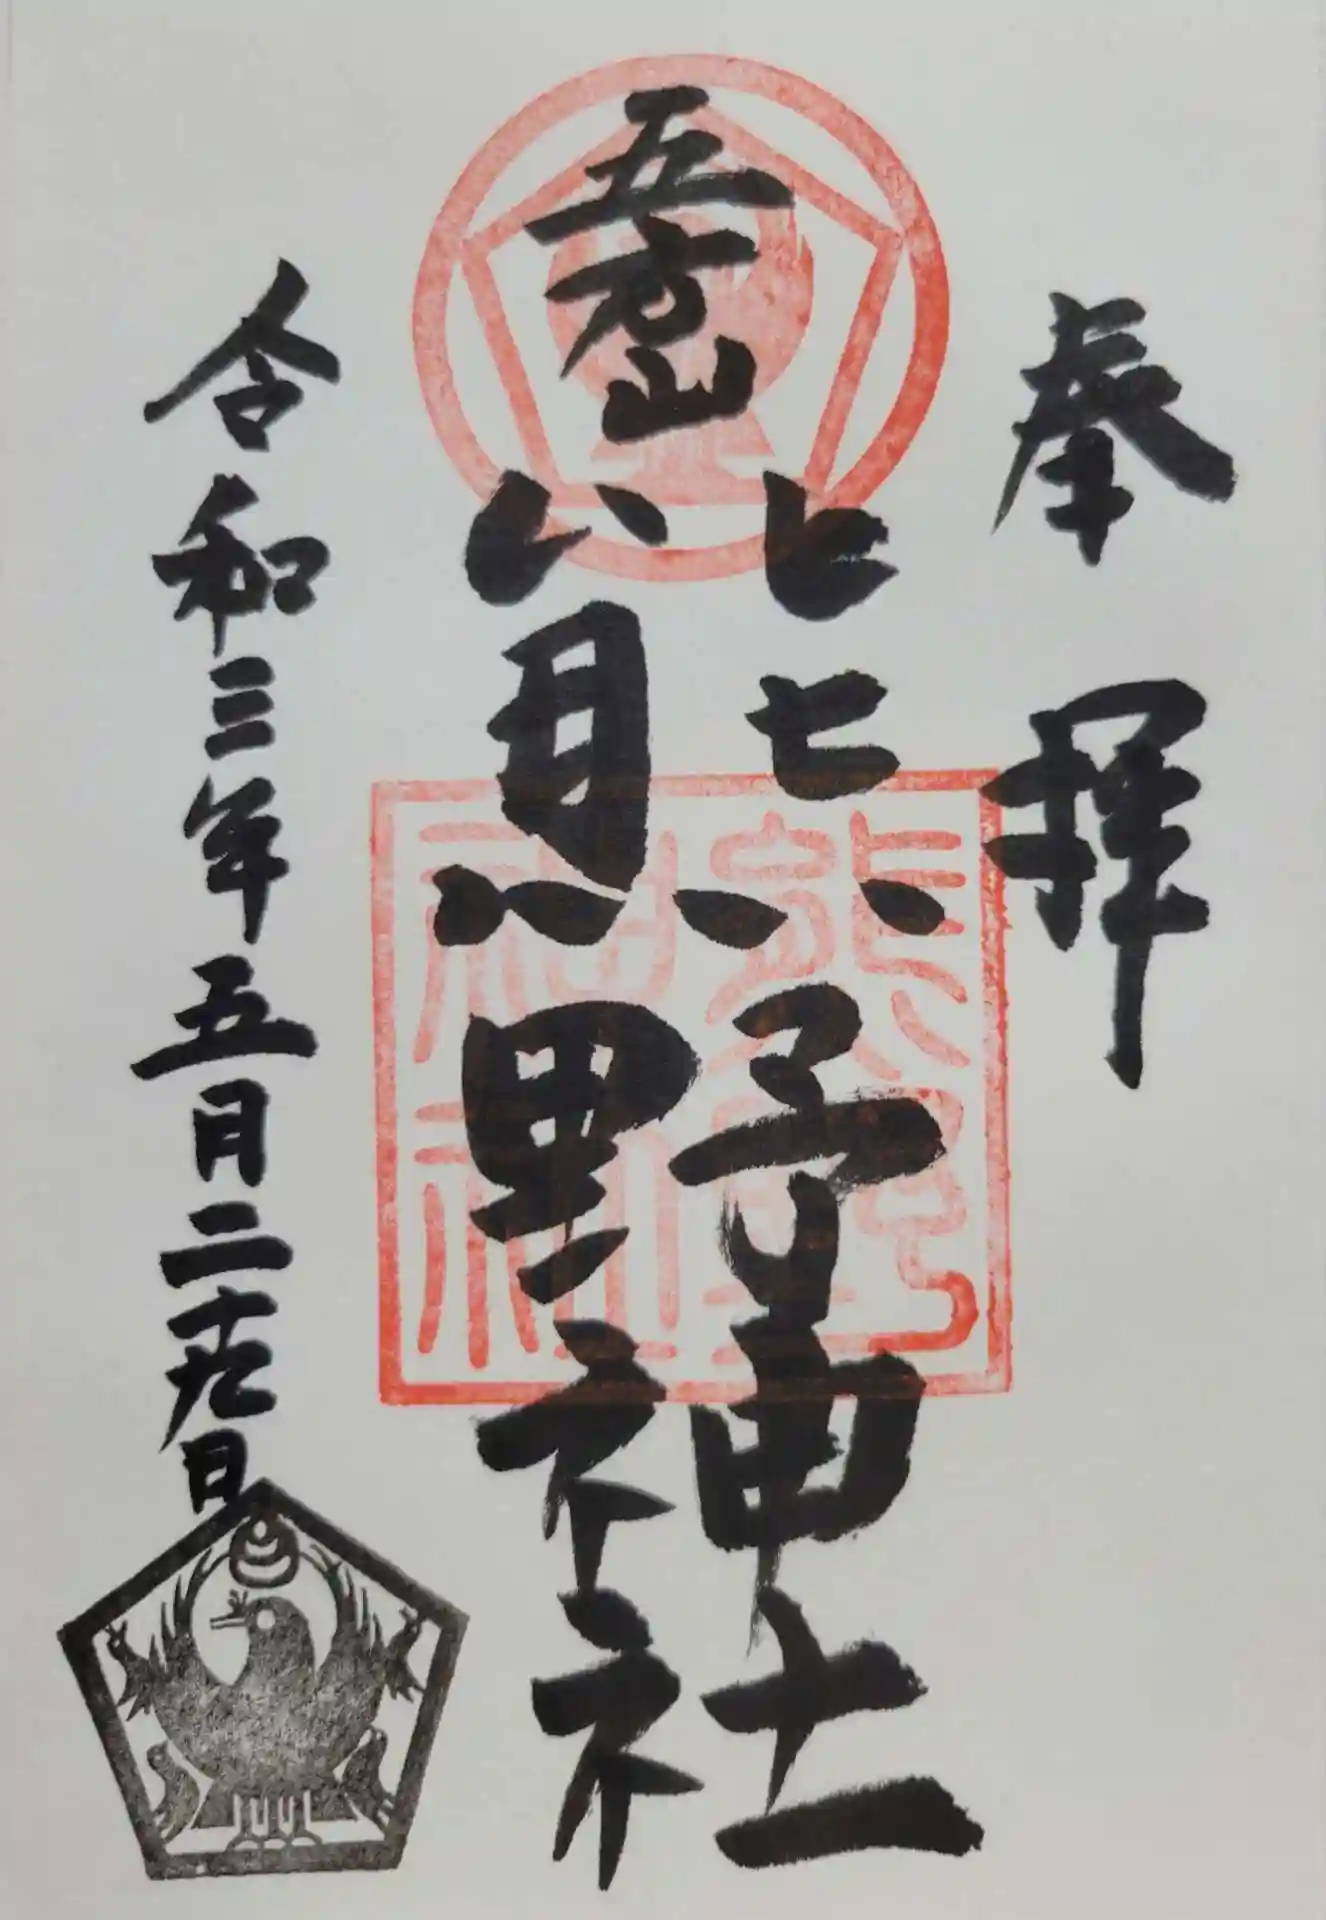 奉拝
五方山
熊野神社
令和三年五月二十九日
熊野
神社